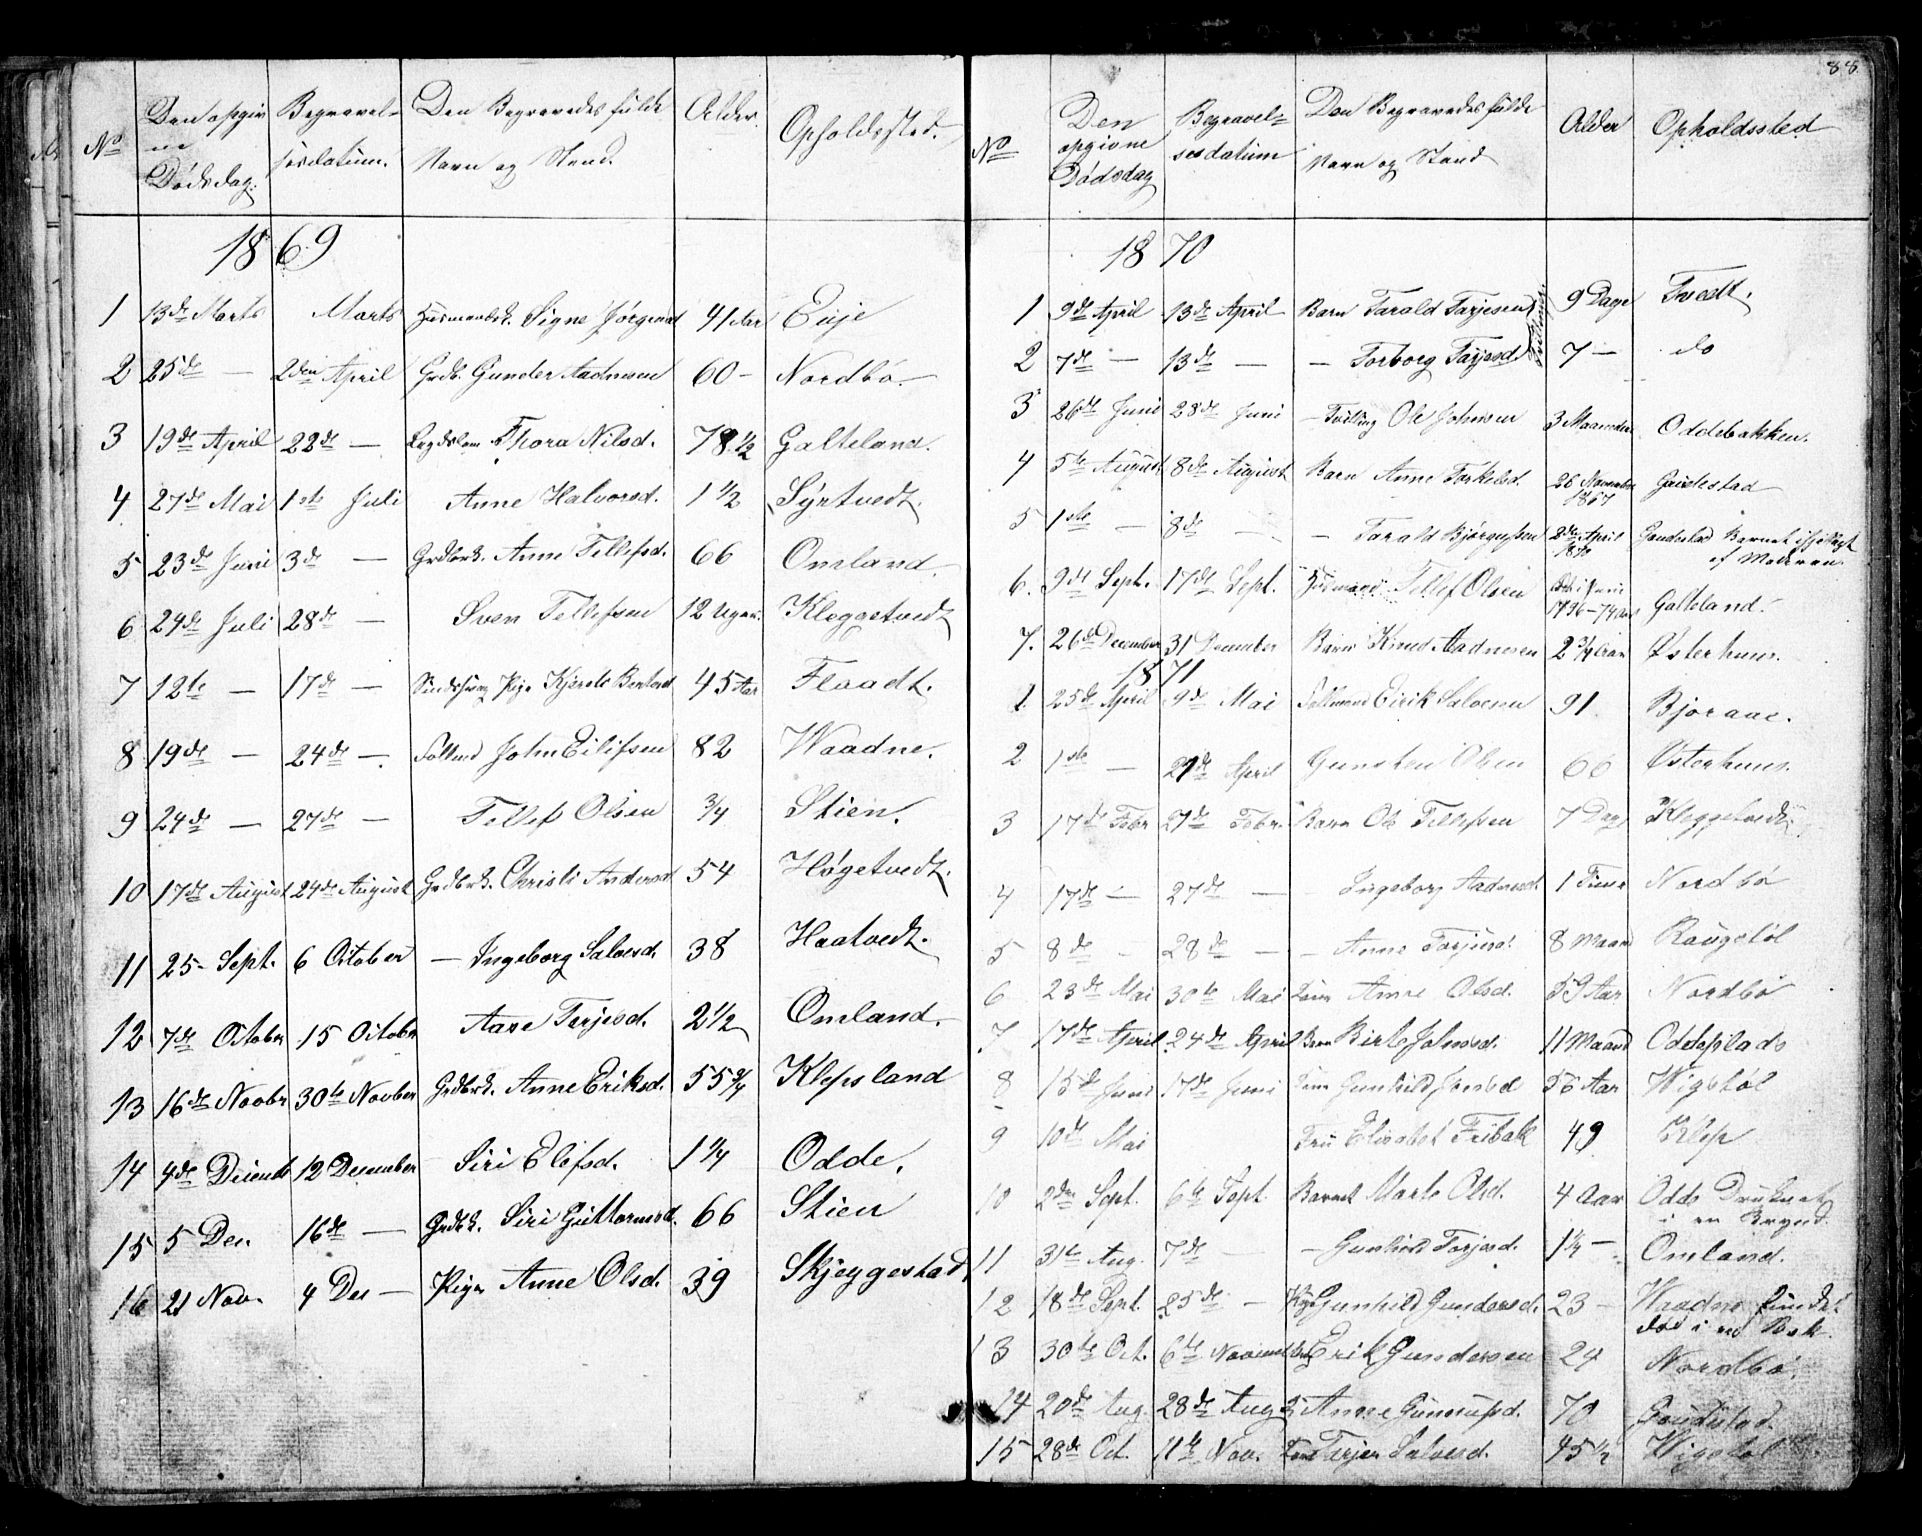 88
No
Den opgivne Dødsdag.
Begravelsesdatum.
Den Begravedes fulde Navn og Stand.
Alder.
Opholdssted.
1869
1 13de Marts Marts Husmandsk. Signe Jørgensd 41 Aar Euje
2 25de — 2den April Grdb. Gunder Aadnesen 60 - Nordbø.
3 19de April 22de — Lægdslem Thora Nilsd. 78 1/2 Galteland.
4 27de Mai 1ste Juli Anne Halvorsd. 1 1/2 Syrtvedt.
5 23de Juni 3de — Grdbrk. Anne Tellefsd. 66 Omland.
6 24de Juli 28de — Sven Tellefsen 12 Uger. Kleggetvedt
7 12te — 17de — Sindssvag Pige Kjersti Bentsd 45 Aar Flaadt.
8 19de — 24de — Follmd John Eilifsen 82 Waadne.
9 24de — 27de — Tellef Olsen 3/4 Stien.
10 17de August 24de August Grdbrk. Christi Andersd 54 Høgetvedt.
11 25- Sept. 6 October — Ingeborg Salvesd. 38 Haatvedt.
12 7de October 15 October Aase Terjesd. 2 1/2 Omland.
13 16de Novbr 30te Novber Grdbrk. Anne Eriksd. 55 3/4 Klepsland
14 4de Decemb 12 December Siri Elefsd. 1 1/4 Odde.
15 5 Dec. 16de — Grdbk. Siri Guttormsd. 66 Stien
16 21 Nov. 4 Dec — Pige Anne Olsd. 39 Skjeggestad
No
Den opgivne Dødsdag
Begravelsesdatum
Den Begravedes fulde Navn og Stand
Alder
Opholdssted
1870
1 9de April 13de April Barn Tarald Tarjesen 9 Dage Tvedt.
Tvillinger
2 7de — 13de — — Torborg Tarjesd. 7 — do
3 26de Juni 28de Juni — Tvilling Ole Johnsen 3 Maaneder Oddebakken.
4 5te August 8de August Barn Anne Torkelsd. 26 November 1867 Gaudestad
5 1ste — 8de — — Tarald Bjørgufsen 2de April 1870 Gaudestad Barnet ihjellagt af Moderen.
6. 9de Sept. 17de Sept. Husmand Tellef Olsen Juni 1796 - 74 Aar Galteland.
7. 26de December 31 December Barn Knud Aadnesen 2 3/4 Aar Østerhuus.
1871
1. 25de April 9de Mai Follmand Eirik Salvesen 91. Bjoraae.
2 1ste — 21de April Gunsten Olsen 66 Østerhuus.
3 17de Febr 27de Febr. Barn Ole Tellefsen 7 Dage Kleggetvedt
4 17de — 27de — — Ingeborg Aadnesd. 1 Time Nordbø
5 8de - 28de — — Anne Tarjesd. 8 Maan Raugstøl
6 23de Mai 30te Mai Anne Olsd. 59 Aar Nordbø
7 17de April 24de April Barn Birte Johnsd. 11 Maand Oddeplads
8 15de Juni 17de Juni Gunhild Jonsd 56 Aar Wigstøl
9 10de Mai Fru Elisabet Fribak 49 Klep
10 2den Sept. 6te Sept. Barnet Marte Olsd. 4 Aar Odde Druknet i en Brynd.
11 31te Aug. 7de — — Gunhild Tarjesd. 1 1/4 — Omland.
12 18de Sept. 25de — Pige Gunhild Gundersd. 23 — Waadne funden død i en Bæk.
13 30te Oct. 6te Novemb Erik Gundersen 24 Nordbø.
14 20de Aug. 28de Aug Anne Gunnufsd. 70 Gaudestad.
15 28de Oct. 11te Nov. Tarjer Salvesd. 45 1/2 Wigstøl